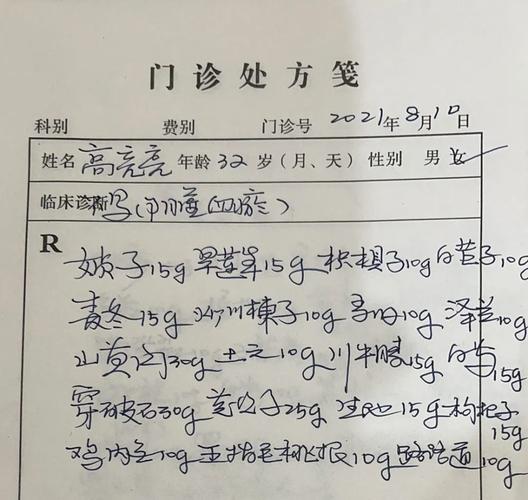 门诊处方笺
科别 费别 门诊号 2021年8月10日
姓名 高亮亮 年龄 32 岁(月、天) 性别 男 女✓
临床诊断 血瘀)
R
女贞子15g 旱莲草15g 枳椇子10g 10g
麦冬15g 川楝子10g 10g 泽兰10g
山萸肉30g 土元10g 川牛膝15g 白芍15g
穿破石30g 25g 生地15g 枸杞子15g
鸡内金10g 王指甲桃根10g 路路通10g